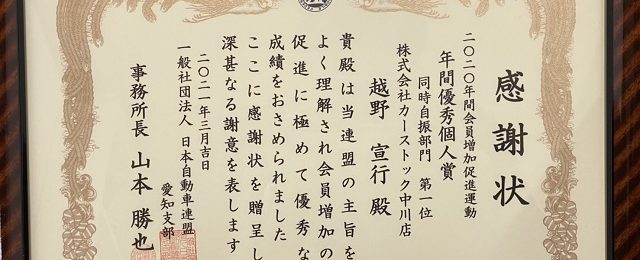 感謝状
二〇二〇年間会員増加促進運動
年間優秀個人賞
同時自振部門 第一位
株式会社カーストック中川店
越野 宣行 殿
貴殿は当連盟の主旨を
よく理解され会員増加の
促進に極めて優秀な
成績をおさめられました
ここに感謝状を贈呈し
深甚なる謝意を表します
二〇二一年三月吉日
一般社団法人 日本自動車連盟
愛知支部
事務所長 山本 勝也